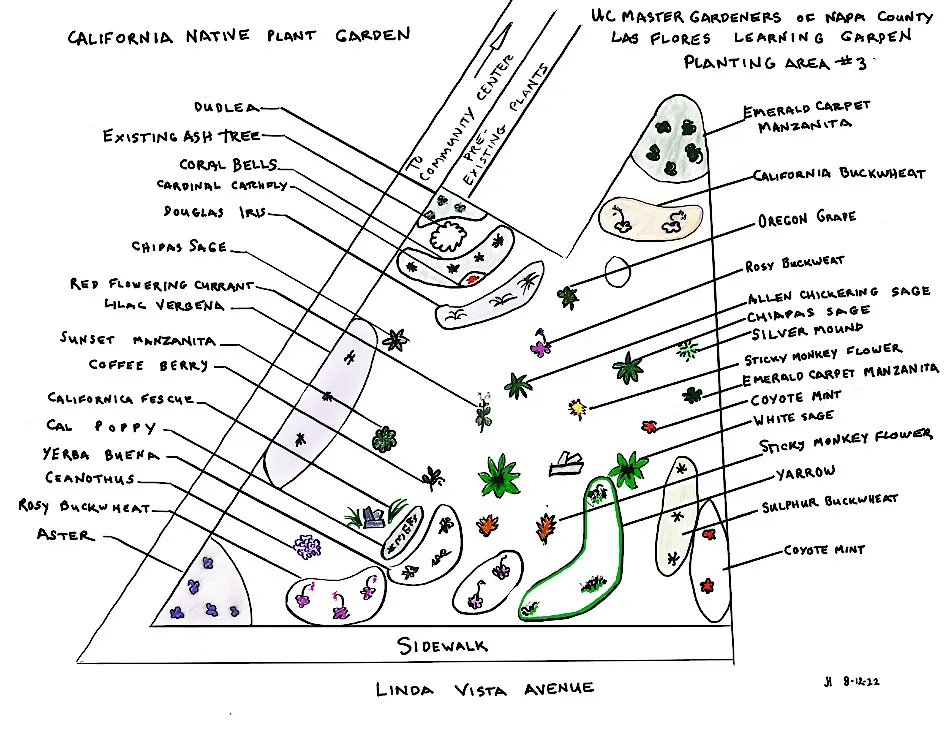 CALIFORNIA NATIVE PLANT GARDEN
UC MASTER GARDENERS OF NAPA COUNTY
LAS FLORES LEARNING GARDEN
PLANTING AREA #3
TO COMMUNITY CENTER
PRE-
EXISTING PLANTS
DUDLEA
EXISTING ASH TREE
CORAL BELLS
CARDINAL CATCHFLY
DOUGLAS IRIS
CHIPAS SAGE
RED FLOWERING CURRANT
LILAC VERBENA
SUNSET MANZANITA
COFFEE BERRY
CALIFORNICA FESCUE
CAL POPPY
YERBA BUENA
CEANOTHUS
ROSY BUCKWHEAT
ASTER
EMERALD CARPET
MANZANITA
CALIFORNIA BUCKWHEAT
OREGON GRAPE
ROSY BUCKWEAT
ALLEN CHICKERING SAGE
CHIAPAS SAGE
SILVER MOUND
STICKY MONKEY FLOWER
EMERALD CARPET MANZANITA
COYOTE MINT
WHITE SAGE
STICKY MONKEY FLOWER
YARROW
SULPHUR BUCKWHEAT
COYOTE MINT
SIDEWALK
LINDA VISTA AVENUE
JH 9-12-22